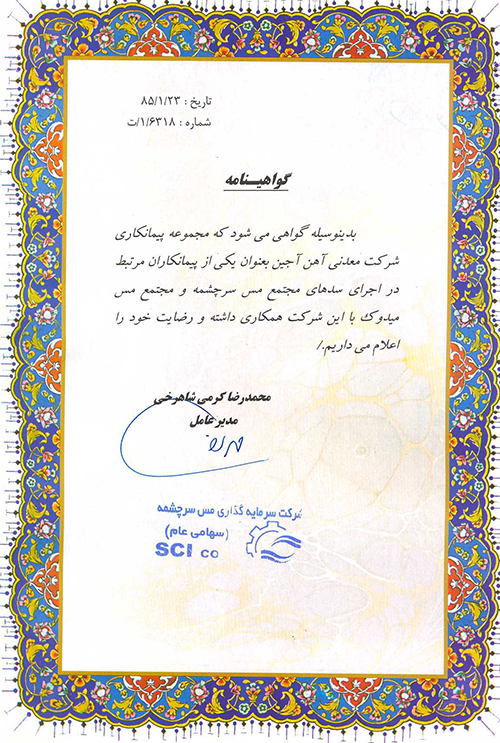 تاریخ : ۸۵/۱/۲۳
شماره : ۱/۶۳۱۸/ت
گواهینامه
بدینوسیله گواهی می شود که مجموعه پیمانکاری
شرکت معدنی آهن آجین بعنوان یکی از پیمانکاران مرتبط
در اجرای سدهای مجتمع مس سرچشمه و مجتمع مس
میدوک با این شرکت همکاری داشته و رضایت خود را
اعلام می داریم./
محمدرضا کرمی شاهرخی
مدیر عامل
شرکت سرمایه گذاری مس سرچشمه
(سهامی عام)
SCI co